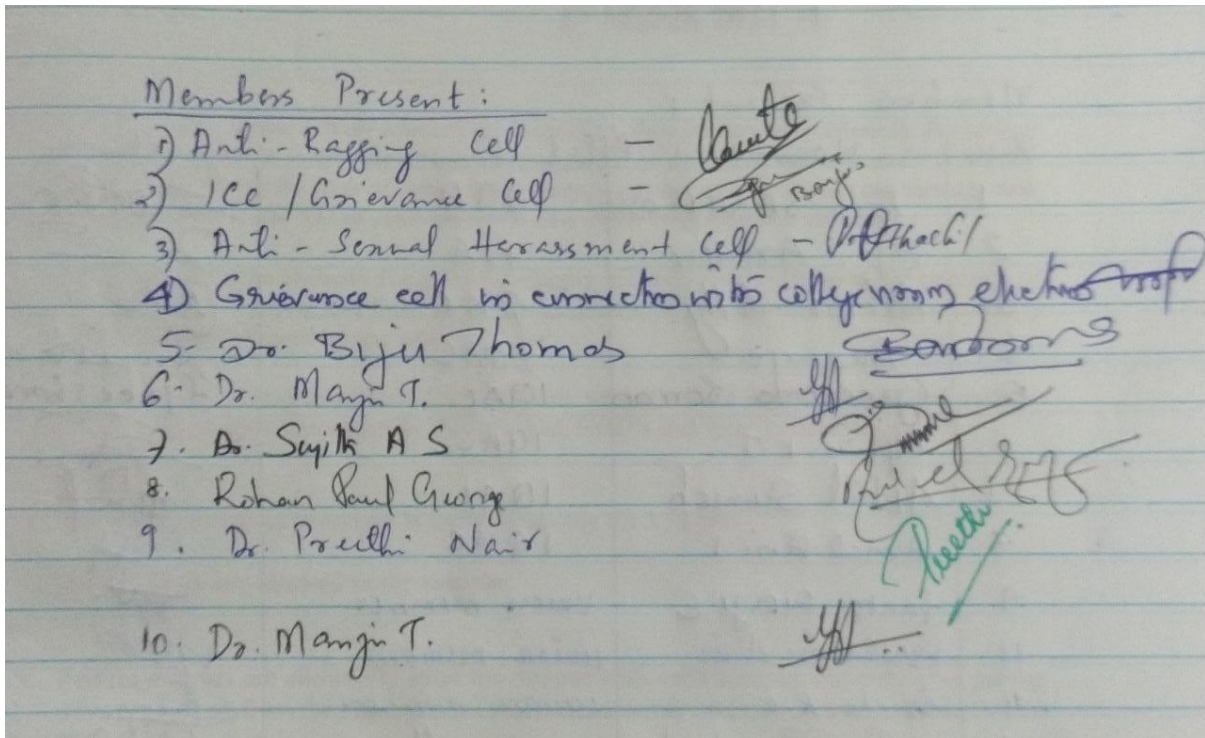 Members Present :
1) Anti - Ragging Cell -
2) ICC / Grievance Cell - Banju
3) Anti - Sexual Harassment Cell -
4) Grievance cell in connection with college union election
5. Dr. Biju Thomas
6. Dr. Manju T.
7. Dr. Sujith A S
8. Rohan Paul George
9. Dr. Preethi Nair Preethi
10. Dr. Manju T.